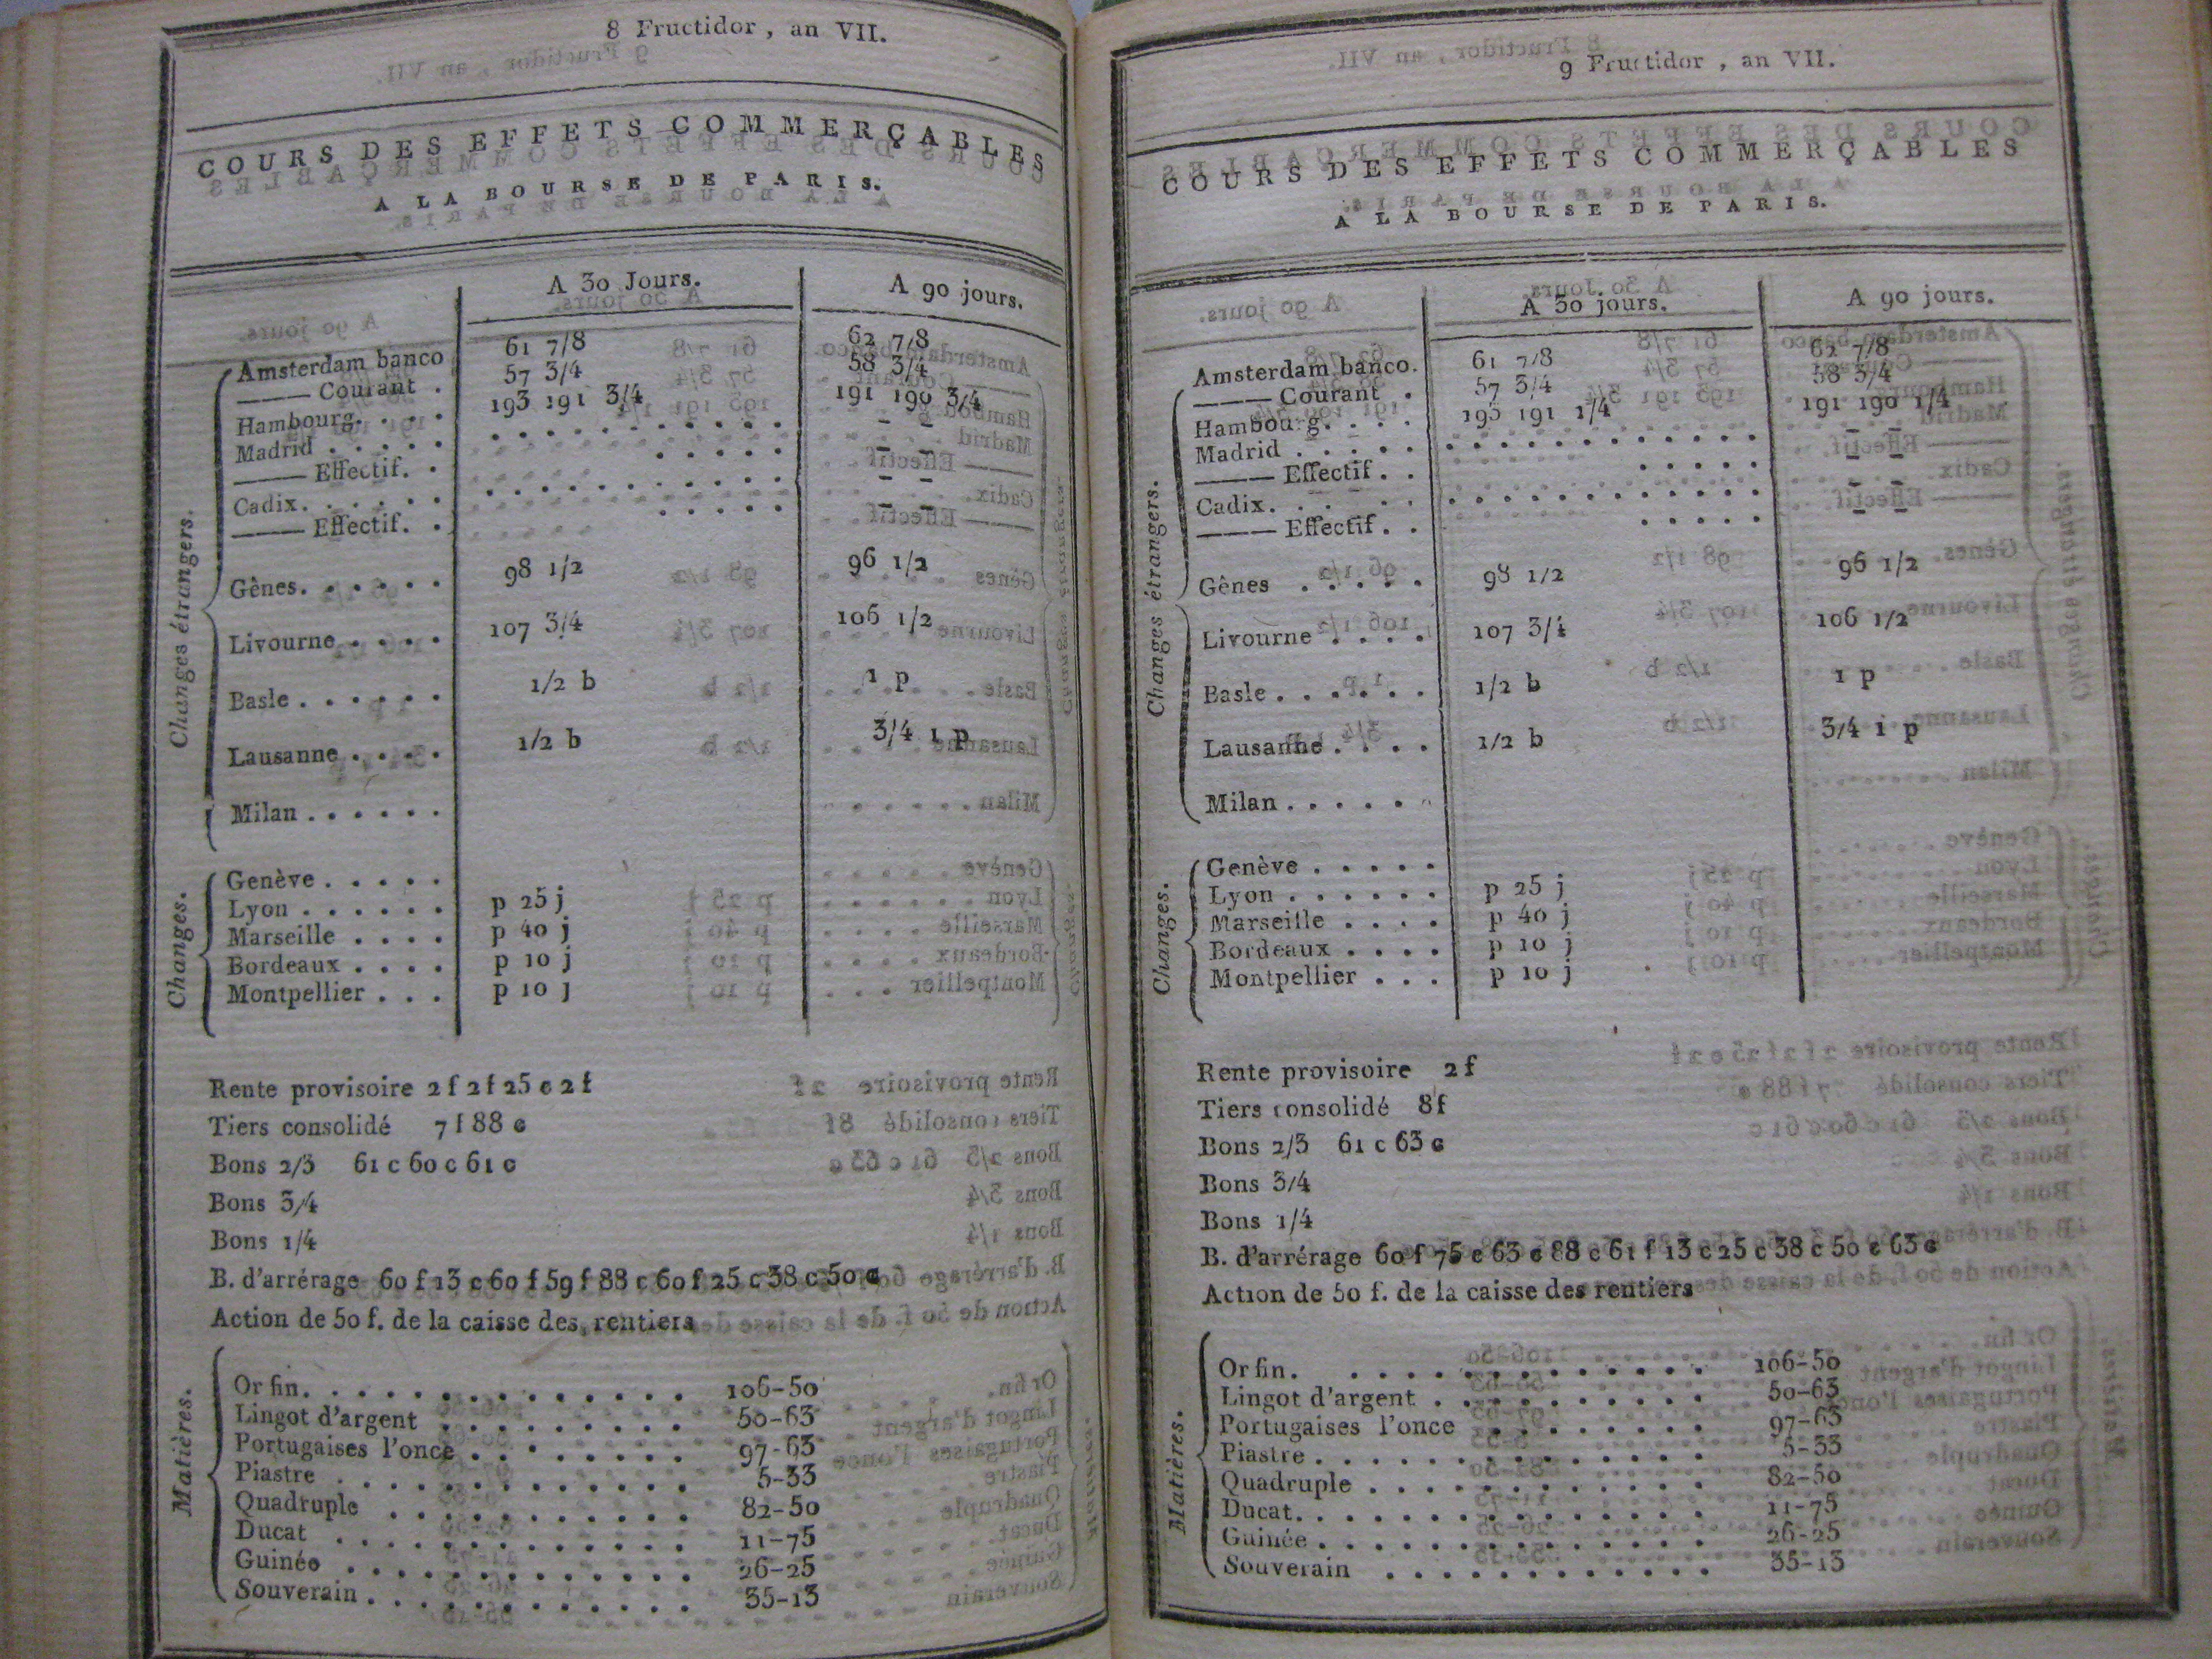 8 Fructidor, an VII.
COURS DES EFFETS COMMERÇABLES
A LA BOURSE DE PARIS.
A 30 Jours. A 90 jours.
Changes étrangers.
Amsterdam banco 61 7/8 62 7/8
—— Courant . 57 3/4 58 3/4
Hambourg. . . . 193 191 3/4 191 190 3/4
Madrid . . . . . – –
—— Effectif. . – –
Cadix. . . . . . – –
—— Effectif. . – –
Gênes. . . . . . 98 1/2 96 1/2
Livourne . . . . 107 3/4 106 1/2
Basle . . . . . . 1/2 b 1 p
Lausanne . . . . 1/2 b 3/4 1 p
Milan . . . . . .
Changes.
Genève . . . . .
Lyon . . . . . . p 25 j
Marseille . . . . p 40 j
Bordeaux . . . . p 10 j
Montpellier . . . p 10 j
Rente provisoire 2 f 2 f 25 c 2 f
Tiers consolidé 7 f 88 c
Bons 2/3 61 c 60 c 61 c
Bons 3/4
Bons 1/4
B. d'arrérage 60 f 13 c 60 f 59 f 88 c 60 f 25 c 38 c 50 c
Action de 50 f. de la caisse des rentiers
Matières.
Or fin. . . . . . . . . . . . . . 106-50
Lingot d'argent . . . . . . . . . 50-63
Portugaises l'once . . . . . . . . 97-63
Piastre . . . . . . . . . . . . . 5-33
Quadruple . . . . . . . . . . . 82-50
Ducat . . . . . . . . . . . . . 11-75
Guinée . . . . . . . . . . . . . 26-25
Souverain . . . . . . . . . . . . 35-13
9 Fructidor, an VII.
COURS DES EFFETS COMMERÇABLES
A LA BOURSE DE PARIS.
A 30 jours. A 90 jours.
Changes étrangers.
Amsterdam banco. 61 7/8 62 7/8
—— Courant . 57 3/4 58 3/4
Hambourg. . . . 193 191 1/4 191 190 1/4
Madrid . . . . . – –
—— Effectif . . – –
Cadix. . . . . . – –
—— Effectif . . – –
Gênes . . . . . 98 1/2 96 1/2
Livourne . . . . 107 3/4 106 1/2
Basle . . . . . . 1/2 b 1 p
Lausanne . . . . 1/2 b 3/4 1 p
Milan . . . . . .
Changes.
Genève . . . . .
Lyon . . . . . . p 25 j
Marseille . . . . p 40 j
Bordeaux . . . . p 10 j
Montpellier . . . p 10 j
Rente provisoire 2 f
Tiers consolidé 8 f
Bons 2/3 61 c 63 c
Bons 3/4
Bons 1/4
B. d'arrérage 60 f 75 c 63 c 88 c 61 f 13 c 25 c 38 c 50 c 63 c
Action de 50 f. de la caisse des rentiers
Matières.
Or fin. . . . . . . . . . . . . 106-50
Lingot d'argent . . . . . . . . . . 50-63
Portugaises l'once . . . . . . . . 97-63
Piastre . . . . . . . . . . . . . 5-33
Quadruple . . . . . . . . . . . . 82-50
Ducat. . . . . . . . . . . . . . 11-75
Guinée . . . . . . . . . . . . . 26-25
Souverain . . . . . . . . . . . . 35-13